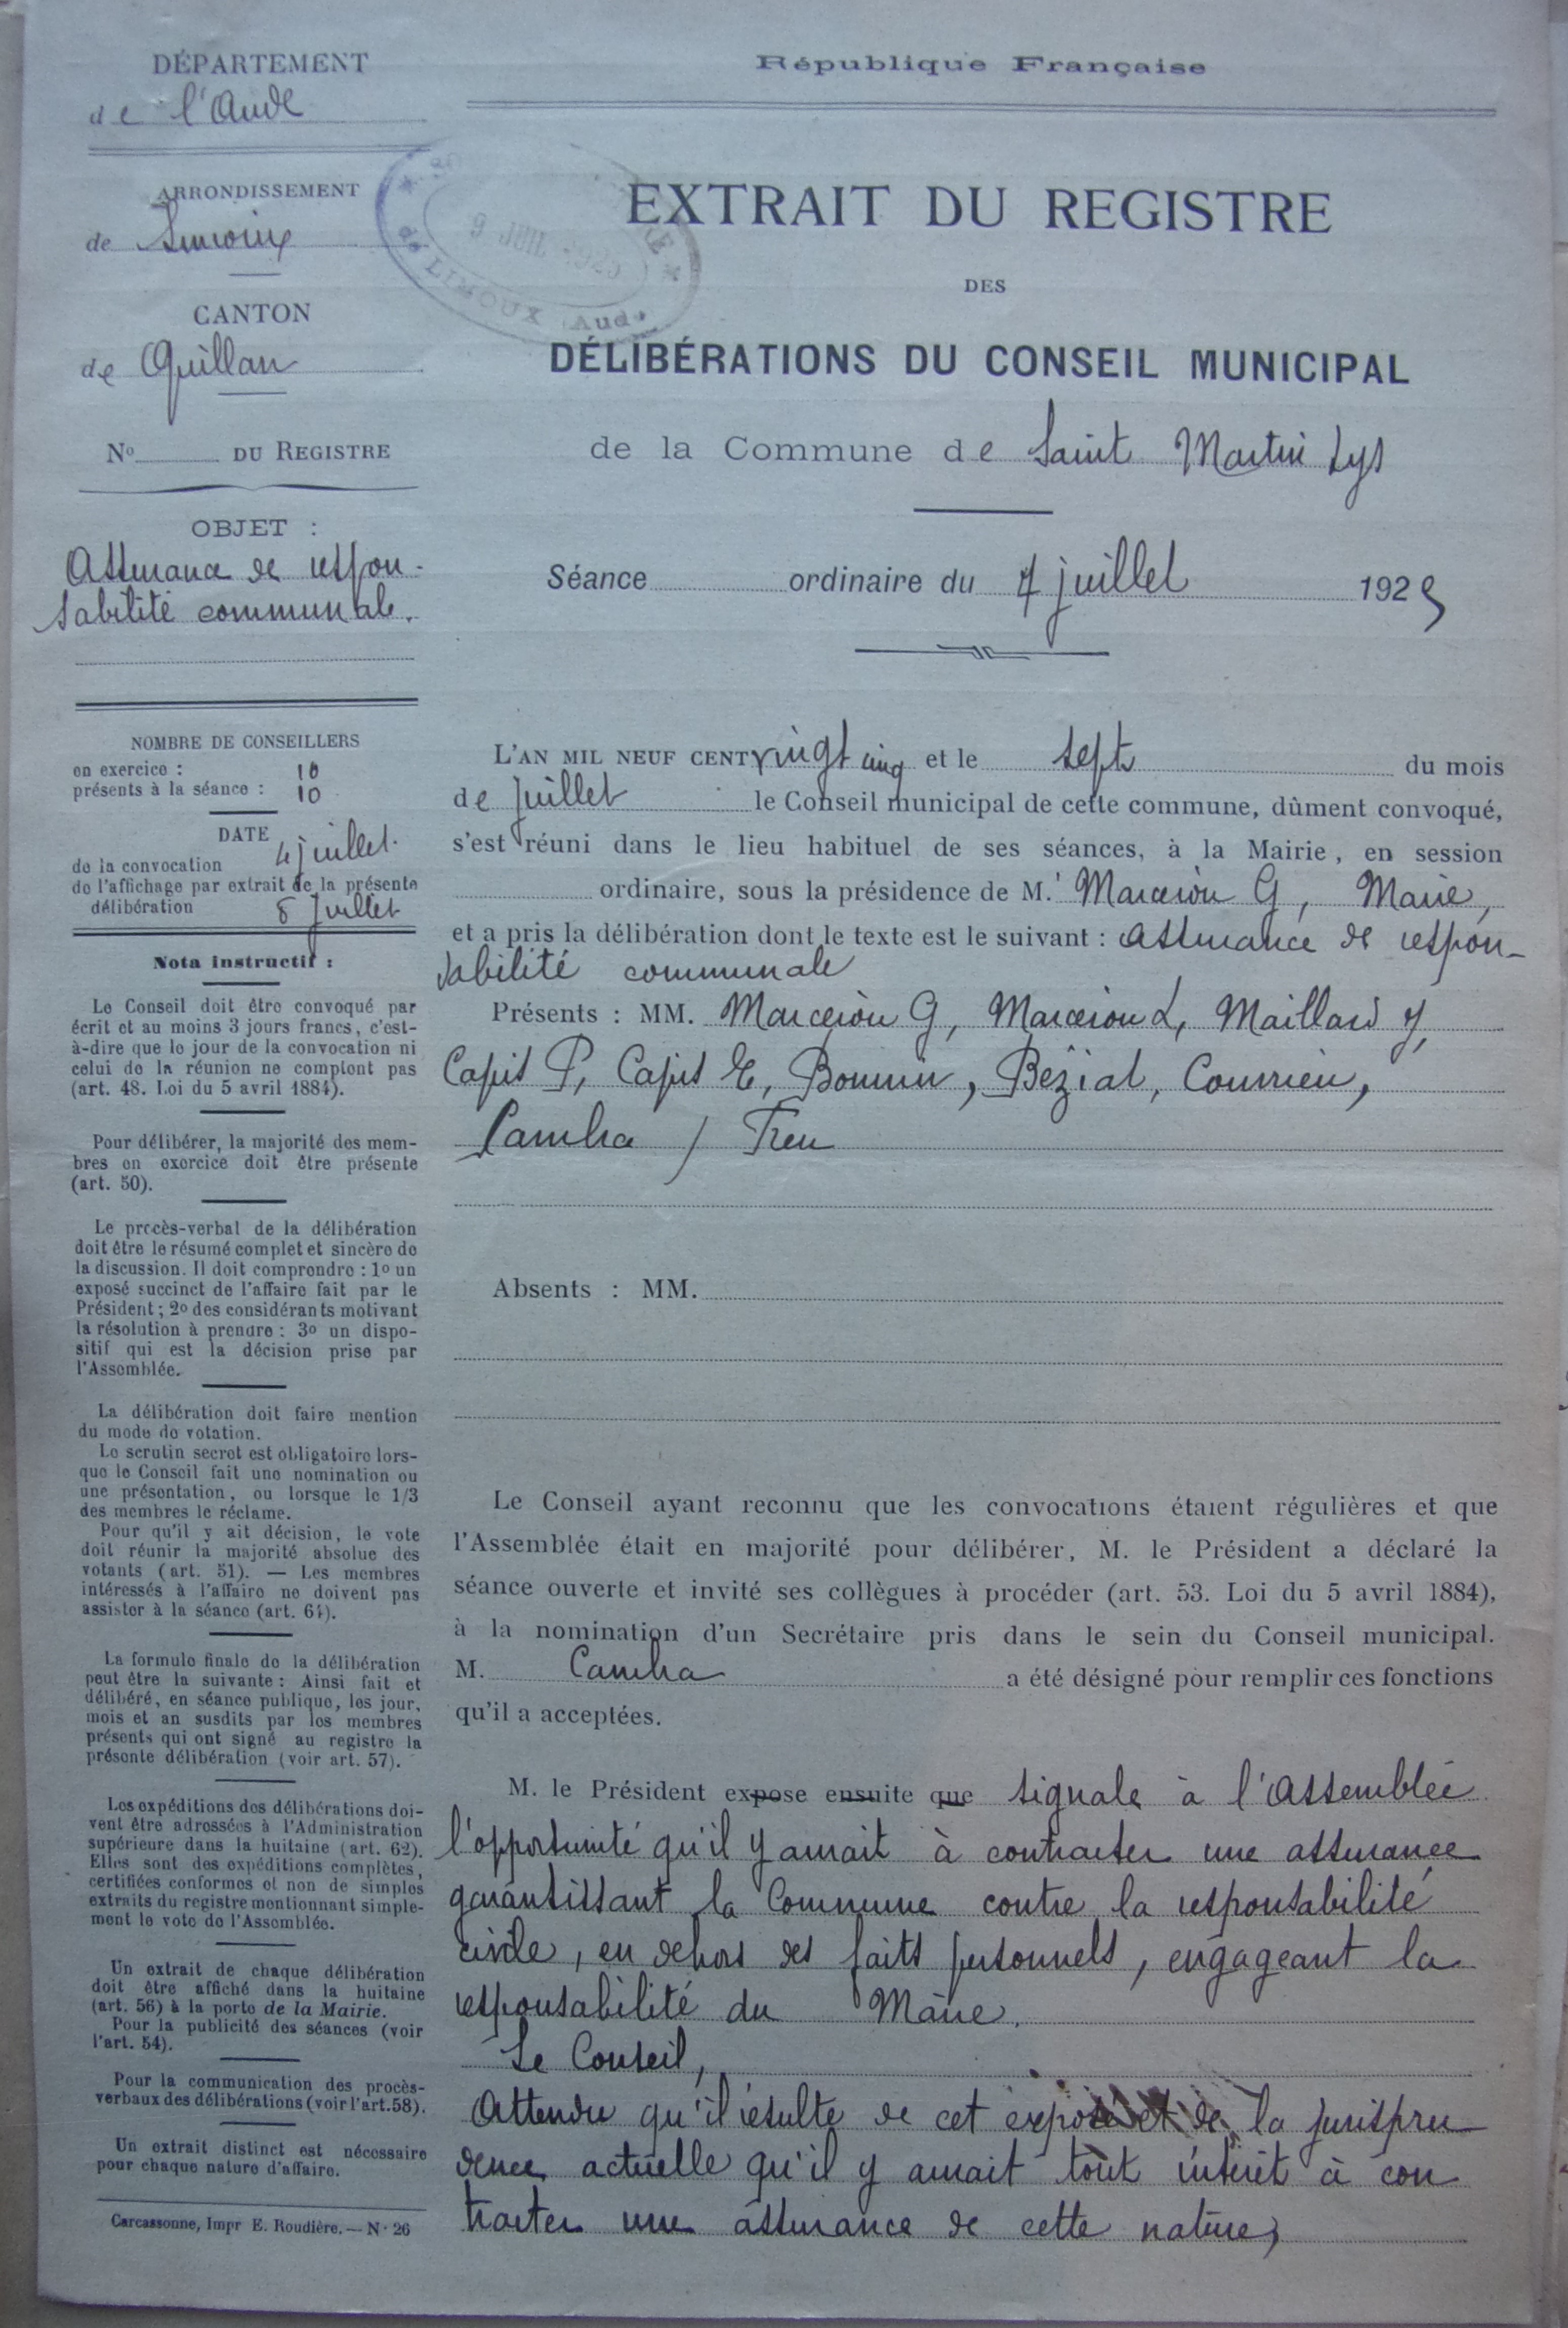 DÉPARTEMENT
de l'Aude
ARRONDISSEMENT
de Limoux
CANTON
de Quillan
No DU REGISTRE
OBJET :
Assurance de respon-
sabilité communale.
NOMBRE DE CONSEILLERS
en exercice : 10
présents à la séance : 10
DATE
de la convocation 4 juillet.
de l'affichage par extrait de la présente
délibération 8 Juillet
Nota instructif :
Le Conseil doit être convoqué par
écrit et au moins 3 jours francs, c'est-
à-dire que le jour de la convocation ni
celui de la réunion ne comptent pas
(art. 48. Loi du 5 avril 1884).
Pour délibérer, la majorité des mem-
bres en exercice doit être présente
(art. 50).
Le procès-verbal de la délibération
doit être le résumé complet et sincère de
la discussion. Il doit comprendre : 1o un
exposé succinct de l'affaire fait par le
Président ; 2o des considérants motivant
la résolution à prendre : 3o un dispo-
sitif qui est la décision prise par
l'Assemblée.
La délibération doit faire mention
du mode de votation.
Le scrutin secret est obligatoire lors-
que le Conseil fait une nomination ou
une présentation, ou lorsque le 1/3
des membres le réclame.
Pour qu'il y ait décision, le vote
doit réunir la majorité absolue des
votants (art. 51). — Les membres
intéressés à l'affaire ne doivent pas
assister à la séance (art. 64).
La formule finale de la délibération
peut être la suivante : Ainsi fait et
délibéré, en séance publique, les jour,
mois et an susdits par les membres
présents qui ont signé au registre la
présente délibération (voir art. 57).
Les expéditions des délibérations doi-
vent être adressées à l'Administration
supérieure dans la huitaine (art. 62).
Elles sont des expéditions complètes,
certifiées conformes et non de simples
extraits du registre mentionnant simple-
ment le vote de l'Assemblée.
Un extrait de chaque délibération
doit être affiché dans la huitaine
(art. 56) à la porte de la Mairie.
Pour la publicité des séances (voir
l'art. 54).
Pour la communication des procès-
verbaux des délibérations (voir l'art. 58).
Un extrait distinct est nécessaire
pour chaque nature d'affaire.
Carcassonne, Impr E. Roudière. — N° 26
République Française
9 JUIL 1925
de LIMOUX (Aude)
EXTRAIT DU REGISTRE
DES
DÉLIBÉRATIONS DU CONSEIL MUNICIPAL
de la Commune de Saint Martin Lys
Séance ordinaire du 7 juillet 1925
L'AN MIL NEUF CENT vingt cinq et le sept du mois
de Juillet le Conseil municipal de cette commune, dûment convoqué,
s'est réuni dans le lieu habituel de ses séances, à la Mairie, en session
ordinaire, sous la présidence de M. Marcerou G, Maire,
et a pris la délibération dont le texte est le suivant : Assurance de respon-
sabilité communale
Présents : MM. Marcerou G, Marcerou L, Maillard J,
Capis P, Capis E, Bonnin, Béziat, Courrieu,
Cambra, Freu
Absents : MM.
Le Conseil ayant reconnu que les convocations étaient régulières et que
l'Assemblée était en majorité pour délibérer, M. le Président a déclaré la
séance ouverte et invité ses collègues à procéder (art. 53. Loi du 5 avril 1884),
à la nomination d'un Secrétaire pris dans le sein du Conseil municipal.
M. Cambra a été désigné pour remplir ces fonctions
qu'il a acceptées.
M. le Président expose ensuite que signale à l'Assemblée
l'opportunité qu'il y aurait à contracter une assurance
garantissant la Commune contre la responsabilité
civile, en dehors des faits personnels, engageant la
responsabilité du Maire.
Le Conseil,
Attendu qu'il résulte de cet exposé et de la jurispru
dence actuelle qu'il y aurait tout intérêt à con
tracter une assurance de cette nature,